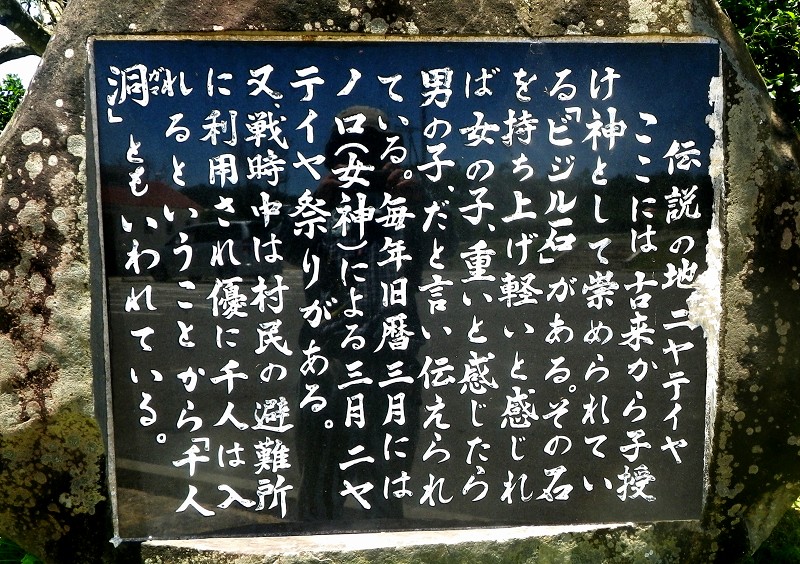 伝説の地ニヤテイヤ
ここには古来から子授
け神として崇められてい
る「ビジル石」がある。その石
を持ち上げ軽いと感じれ
ば女の子、重いと感じたら
男の子、だと言い伝えられ
ている。毎年旧暦三月には
ノロ(女神)による三月ニヤ
テイヤ祭りがある。
又、戦時中は村民の避難所
に利用され優に千人は入
れるということから「千人
洞」ともいわれている。
ガマ